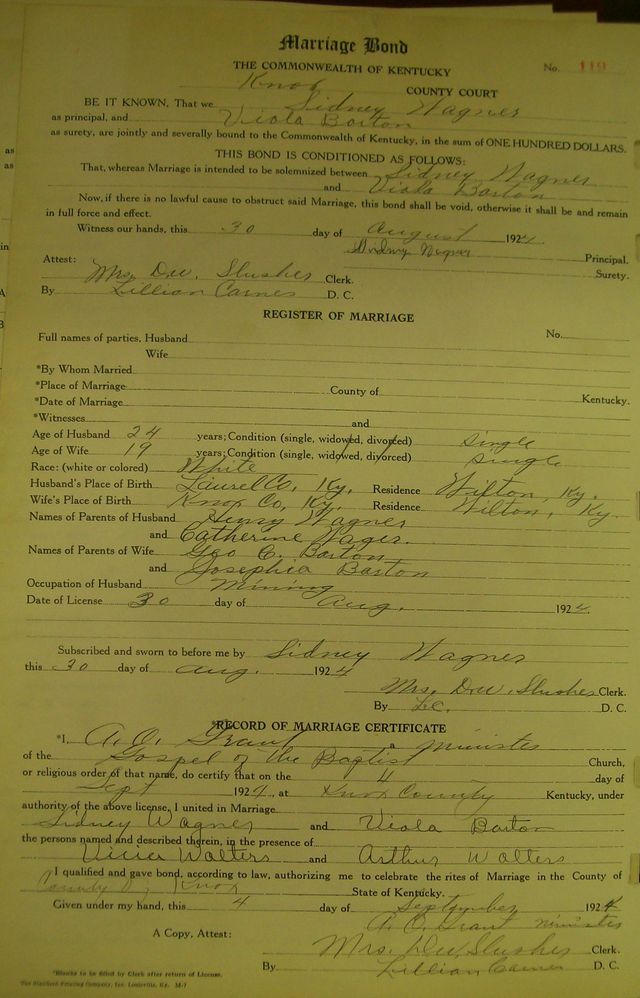 Marriage Bond
THE COMMONWEALTH OF KENTUCKY No. 119
Knox COUNTY COURT
BE IT KNOWN, That we Sidney Wagner
as principal, and Viola Barton
as surety, are jointly and severally bound to the Commonwealth of Kentucky, in the sum of ONE HUNDRED DOLLARS.
THIS BOND IS CONDITIONED AS FOLLOWS:
That, whereas Marriage is intended to be solemnized between Sidney Wagner
and Viola Barton
Now, if there is no lawful cause to obstruct said Marriage, this bond shall be void, otherwise it shall be and remain
in full force and effect.
Witness our hands, this 30 day of August 1924
Sidney Wagner Principal.
Attest: Surety.
Mrs. D.W. Slusher Clerk.
By Lillian Carnes D. C.
REGISTER OF MARRIAGE
Full names of parties, Husband No.
Wife
*By Whom Married
*Place of Marriage County of Kentucky.
*Date of Marriage
*Witnesses and
Age of Husband 24 years; Condition (single, widowed, divorced) single
Age of Wife 19 years; Condition (single, widowed, divorced) single
Race: (white or colored) White
Husband's Place of Birth Laurel Co, Ky. Residence Wilton, Ky.
Wife's Place of Birth Knox Co, Ky. Residence Wilton, Ky.
Names of Parents of Husband Henry Wagner
and Catherine Wager.
Names of Parents of Wife Geo C. Barton
and Josephia Barton
Occupation of Husband Mining
Date of License 30 day of Aug. 1924.
Subscribed and sworn to before me by Sidney Wagner
this 30 day of Aug. 1924
Mrs. D.W. Slusher Clerk.
By L.C. D. C.
*RECORD OF MARRIAGE CERTIFICATE
*I, A. O. Grant a minister
of the Gospel of the Baptist Church,
or religious order of that name, do certify that on the 4 day of
Sept 1924, at Knox County Kentucky, under
authority of the above license, I united in Marriage
Sidney Wagner and Viola Barton
the persons named and described therein, in the presence of
Walters and Arthur Walters
I qualified and gave bond, according to law, authorizing me to celebrate the rites of Marriage in the County of
County of Knox State of Kentucky.
Given under my hand, this 4 day of September 1924
A. O. Grant minister
A Copy, Attest: Mrs. D.W. Slusher Clerk.
By Lillian Carnes D. C.
*Blanks to be filled by Clerk after return of License.
The Standard Printing Company, Inc. Louisville, Ky. M-7